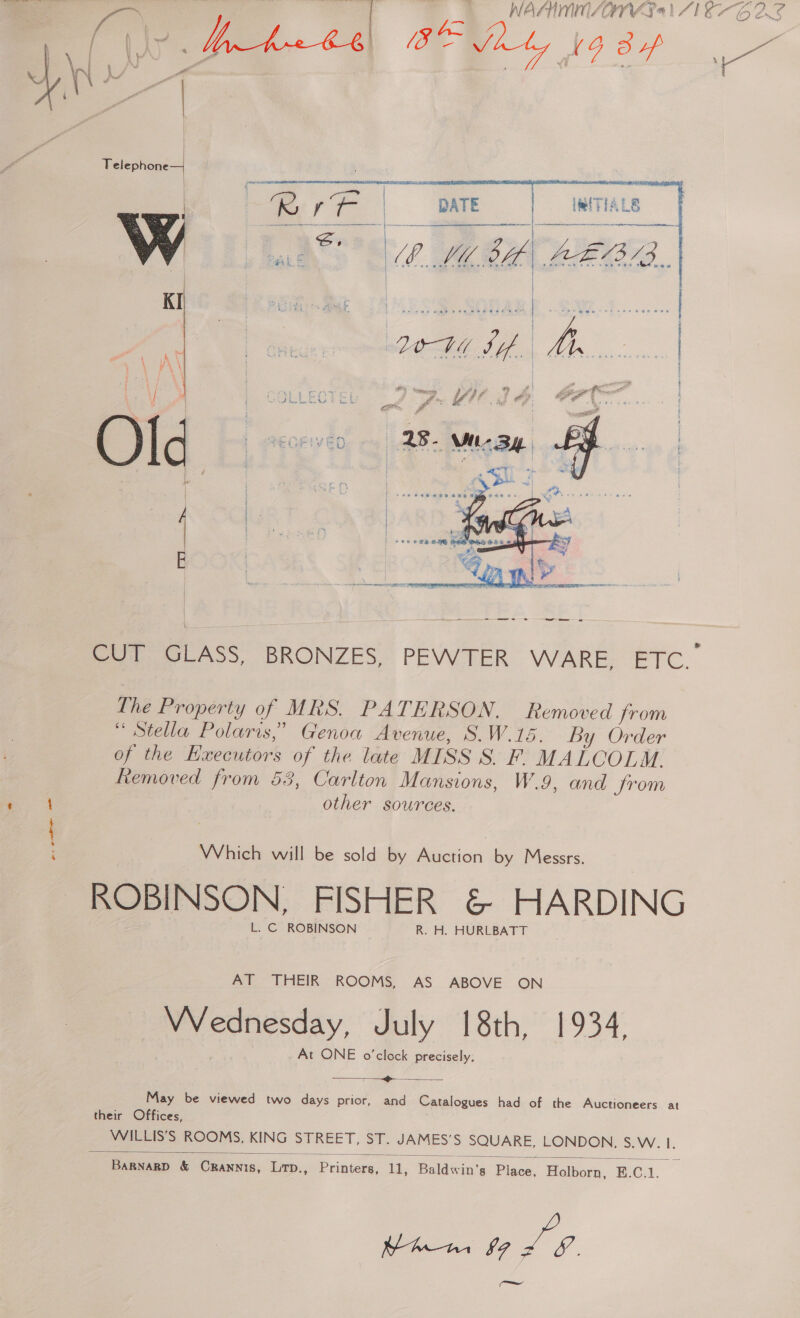 WA/HMM/CM/Sal/18/623
18th July 1934
Telephone—
R & F DATE INITIALS
W
SALE 18. VII. 34
KI
CHECKED 20 VII 34.
COLLECTED 27. VII 34
Old RECEIVED 28. VII. 34
A
E
CUT GLASS, BRONZES, PEWTER WARE, ETC.
The Property of MRS. PATERSON. Removed from
“Stella Polaris,” Genoa Avenue, S.W.15. By Order
of the Executors of the late MISS S. F. MALCOLM.
Removed from 53, Carlton Mansions, W.9, and from
other sources.
Which will be sold by Auction by Messrs.
ROBINSON, FISHER & HARDING
L. C ROBINSON R. H. HURLBATT
AT THEIR ROOMS, AS ABOVE ON
Wednesday, July 18th, 1934,
At ONE o'clock precisely.
May be viewed two days prior, and Catalogues had of the Auctioneers at
their Offices,
WILLIS'S ROOMS, KING STREET, ST. JAMES'S SQUARE, LONDON, S.W. 1.
BARNARD & CRANNIS, LTD., Printers, 11, Baldwin's Place, Holborn, E.C.1.